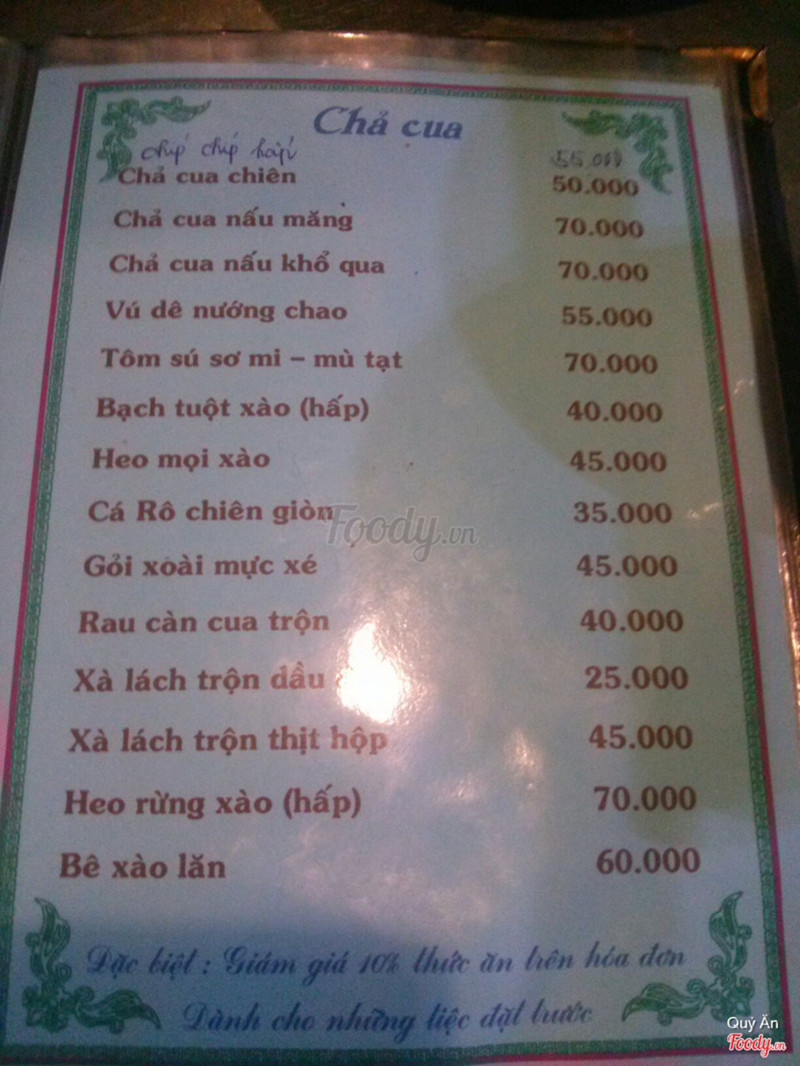 Chả cua
chíp chíp hấp 55.000
Chả cua chiên 50.000
Chả cua nấu măng 70.000
Chả cua nấu khổ qua 70.000
Vú dê nướng chao 55.000
Tôm sú sơ mi – mù tạt 70.000
Bạch tuột xào (hấp) 40.000
Heo mọi xào 45.000
Cá Rô chiên giòn 35.000
Foody.vn
Gỏi xoài mực xé 45.000
Rau càn cua trộn 40.000
Xà lách trộn dầu 25.000
Xà lách trộn thịt hộp 45.000
Heo rừng xào (hấp) 70.000
Bê xào lăn 60.000
Đặc biệt : Giám giá 10% thức ăn trên hóa đơn
Dành cho những tiệc đặt trước
Quỷ Ăn
Foody.vn